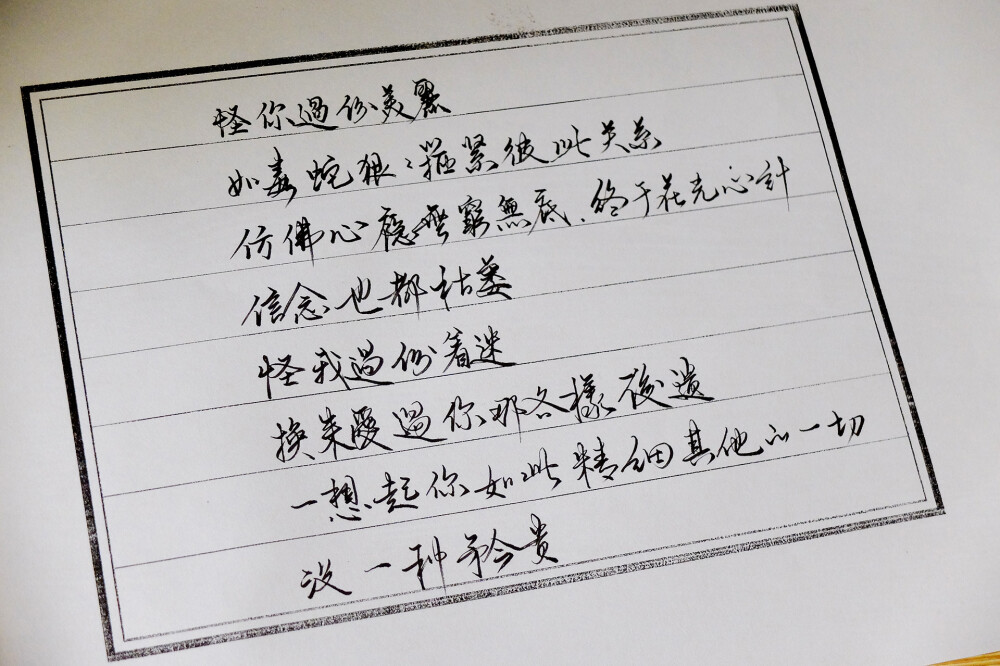 怪你過份美麗
如毒蛇狠〻箍緊彼此关系
仿佛心癮無窮無底、終于花光心計
信念也都枯萎
怪我過份着迷
換来愛過你那各樣後遺
一想起你如此精细其他的一切
没一种矜贵